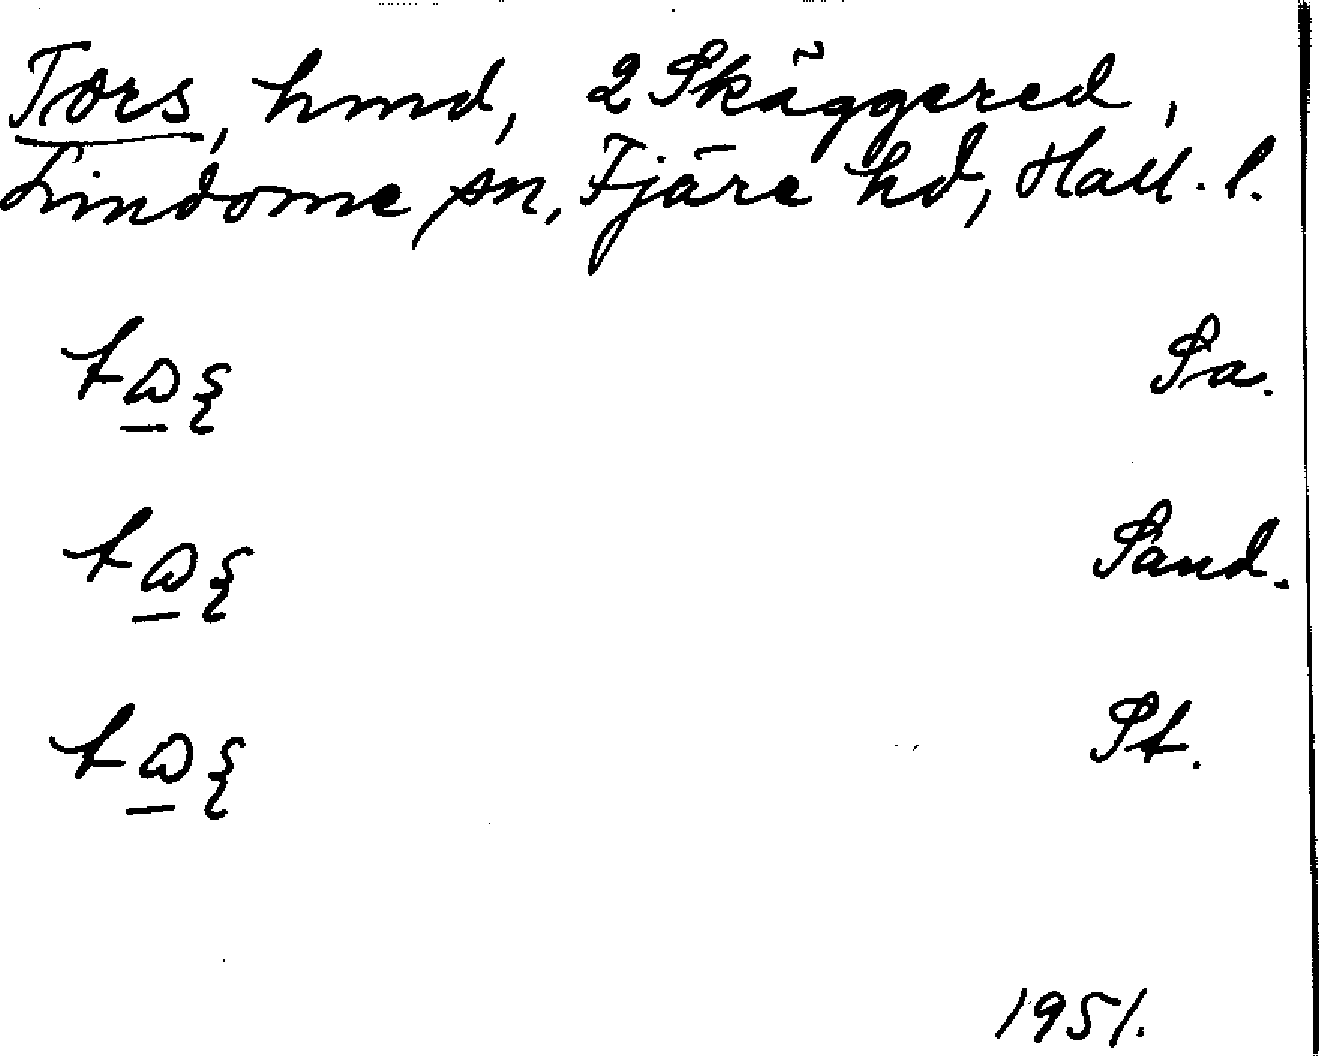 Tors, hmd, 2 Skäggered,
Lindome sn, Fjäre hd, Hall. l.
Sa.
Sand.
St.
1951.